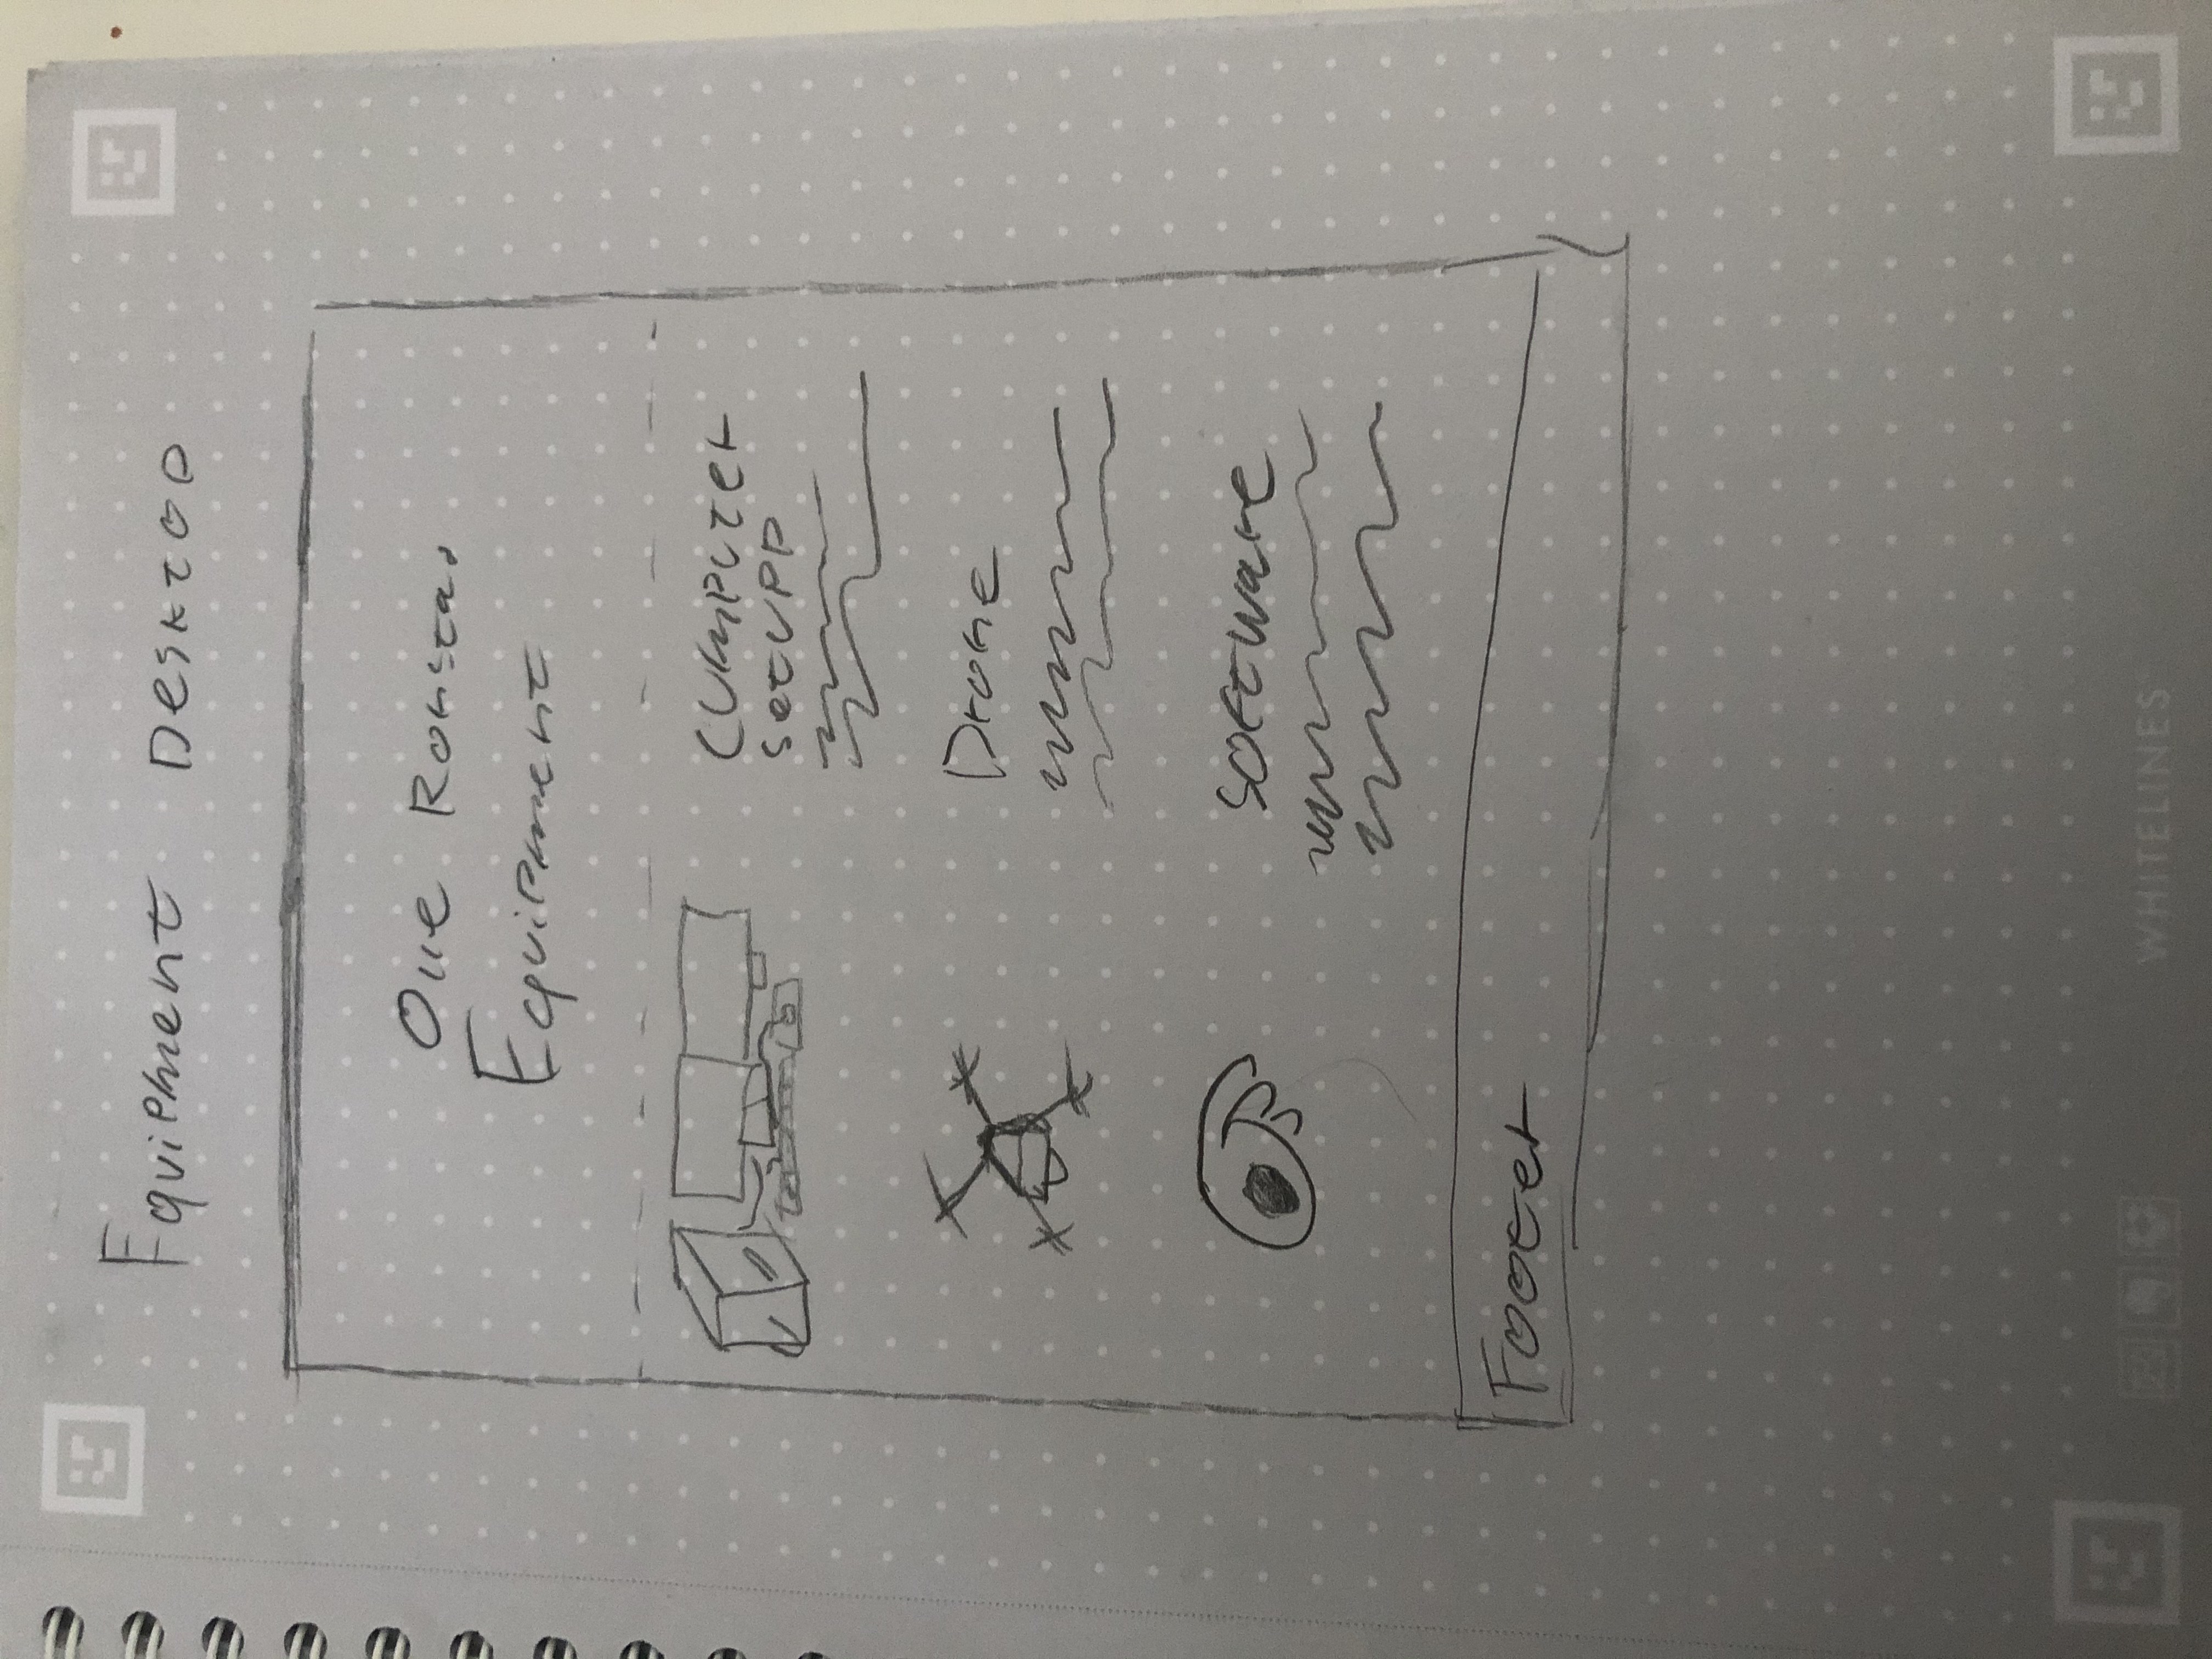 Equipment Desktop
Olle Ronstad
Equipment
Cumputer
setupp
Drone
software
Footer
WHITELINES